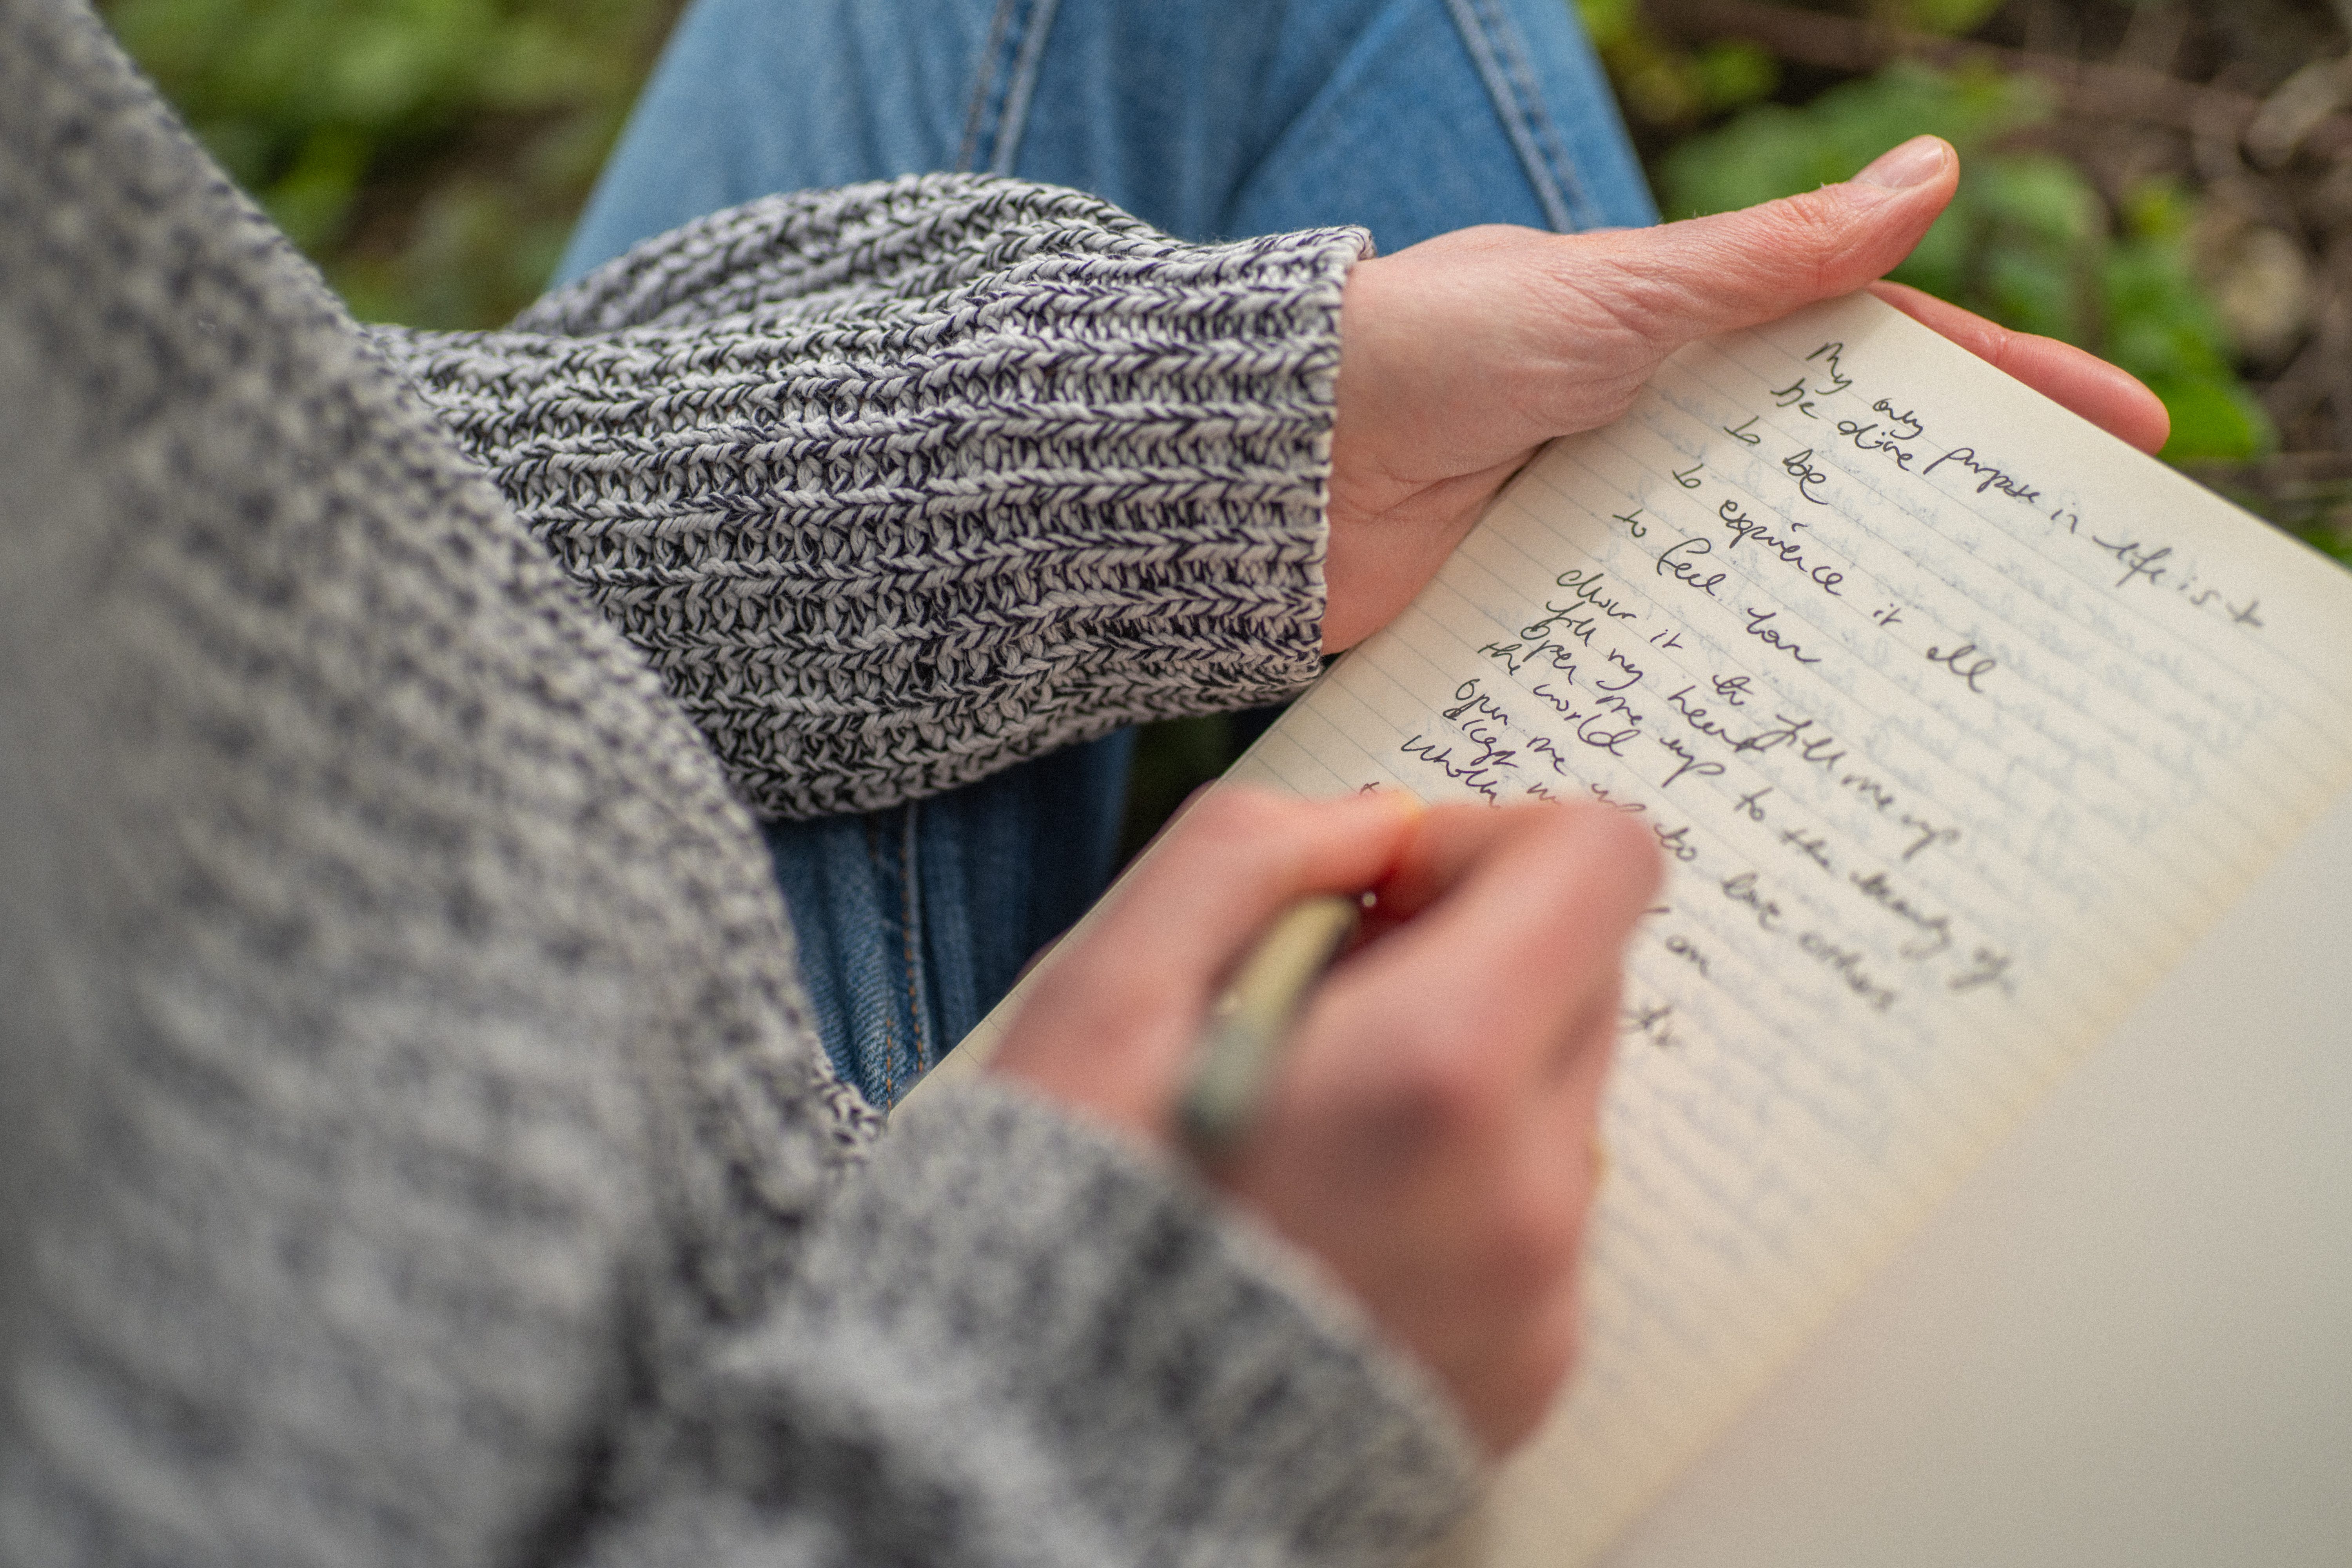 My only purpose in life is to
be alive
to love
to experience it all
to feel
allow it to fill me up
fill my heart
open me up to the beauty of
the world
open me up to love others
accept